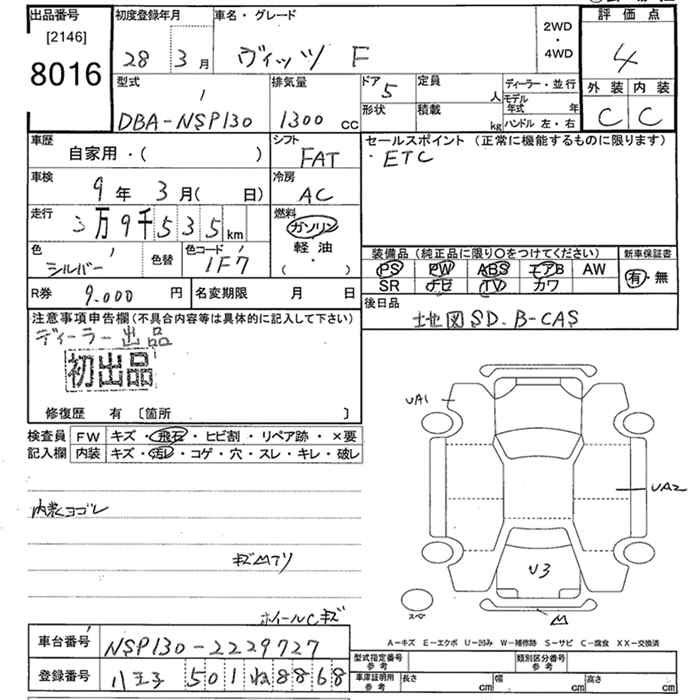 出品番号 初度登録年月 車名・グレード 評価点
[2146]
8016
28年 3月 ヴィッツ F
2WD
・
4WD
4
型式 排気量 ドア 5 定員 人 ディーラー・並行 外装 内装
DBA-NSP130 1300 cc
形状 積載 kg モデル年式 年
ハンドル 左・右
C C
車歴 自家用・( )
シフト FAT
セールスポイント (正常に機能するものに限ります)
・ETC
車検 9年 3月( 日)
冷房 AC
走行 3万9千535km
燃料 ガソリン
軽油
( )
色 シルバー 色替 色コード 1F7
装備品 (純正品に限り○をつけてください) 新車保証書
PS PW ABS エアB AW
SR ナビ TV カワ
有・無
R券 9,000円 名変期限 月 日
後日品 地図SD. B-CAS
注意事項申告欄(不具合内容等は具体的に記入して下さい)
ディーラー出品
初出品
修復歴 有 〔箇所 〕
検査員 FW キズ・飛石・ヒビ割・リペア跡・×要
記入欄 内装 キズ・汚レ・コゲ・穴・スレ・キレ・破レ
内装ヨゴレ
ホイールCキズ
UA1
UA2
U3
スペア
A-キズ E-エクボ U-凹み W-補修跡 S-サビ C-腐食 XX-交換済
車台番号 NSP130-2229727
登録番号 八王子 501 ね 8868
型式指定番号 参考 類別区分番号 参考
車庫証明用 参考 長さ cm 幅 cm 高さ cm